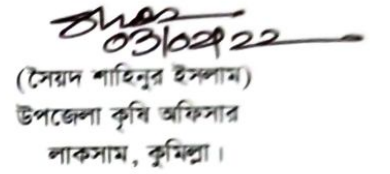 03/02/22
(সৈয়দ শাহিনুর ইসলাম)
উপজেলা কৃষি অফিসার
লাকসাম, কুমিল্লা।